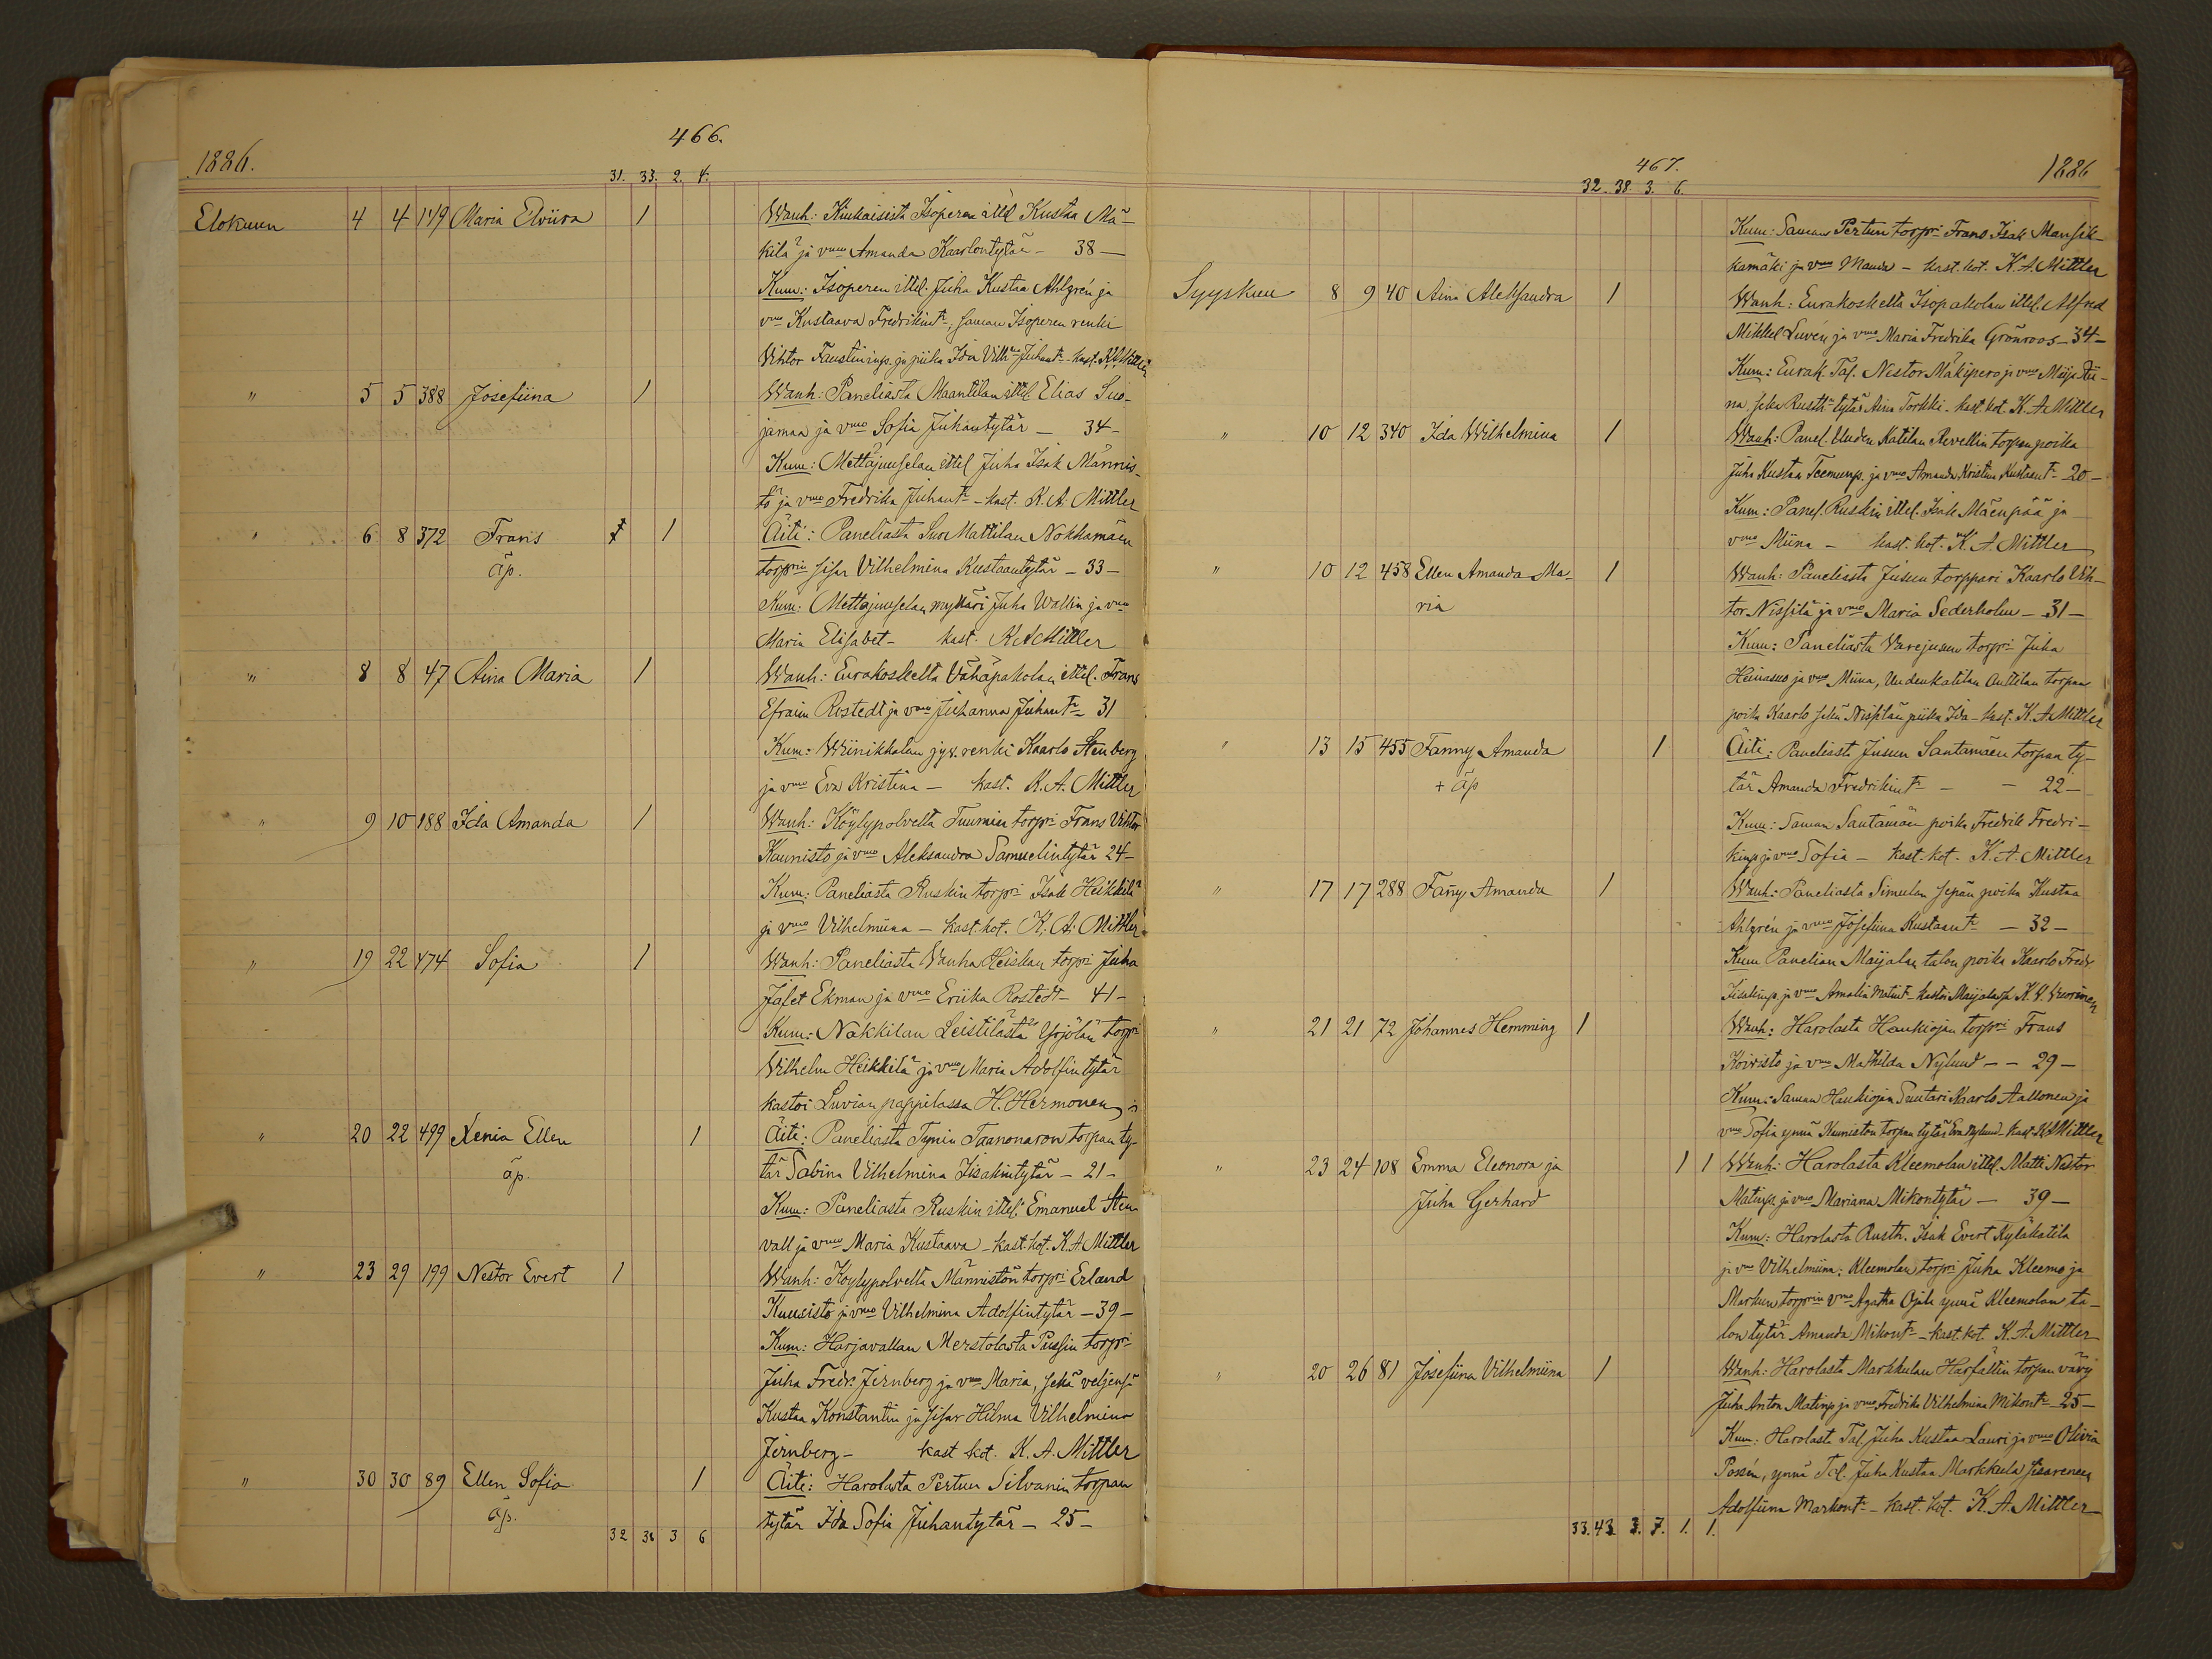 466.
1886.
31. 33. 2. 4.
Elokuun 4 4 149 Maria Elviira 1 Wanh: Kiukaisista Isoperen ittel Kustaa Mä-
kilä ja vmo Amanda Kaarlontytär - 38 -
Kum: Isoperen ittel. Juha Kustaa Ahlgrén ja
vmo Kustaava Fredrikint:, saman Isoperen renki
Vihtor Faustininp. ja piika Ida Juhant - kast. K. A. Mittler
" 5 5 388 Josefiina 1 Wanh: Paneliasta Maantilan ittel Elias Suo-
jamaa ja vmo Sofia Juhantytär - 34 -
Kum: Mettäjuuselan ittel Juha Isak Männis-
tö ja vmo Fredrika Juhant: - kast. K. A. Mittler
" 6 8 372 Frans 1 Äiti: Paneliasta Suo Mattilan Nokkamäen
äp. torprin sisar Vilhelmina Kustaantytär - 33 -
Kum: Mettäjuuselan mylläri Juha Wallin ja vmo
Maria Elisabet - kast. K A Mittler
" 8 8 47 Aina Maria 1 Wanh: Eurakoskelta Vähäpakolan ittel. Frans
Efraim Rostedt ja vmo Juhanna Juhant: 31
Kum: Wiinikkalan jyv. renki Kaarlo Stenberg
ja vmo Eva Kristina - kast. K. A. Mittler
" 9 10 188 Ida Amanda 1 Wanh: Köylypolvelta Tuumin torpri Frans Vihtor
Kaunisto ja vmo Aleksandra Samuelintytär 24 -
Kum: Paneliasta Ruskin torpri Isak Heikkilä
ja vmo Vilhelmiina - kast. kot. K. A. Mittler
" 19 22 474 Sofia 1 Wanh: Paneliasta Vanha Heiskan torpri Juha
Jafet Ekman ja vmo Eriika Rostedt - 41 -
Kum: Nakkilan Leistilästä Yrjölän torpri
Vilhelm Heikkilä ja vmo Maria Adolfintytär
kastoi Luvian pappilassa H. Hermonen
" 20 22 499 Xenia Ellen 1 Äiti: Paneliasta Tynin Taanonaron torpan ty-
äp. tär Sabina Vilhelmina Iisakintytär - 21 -
Kum: Paneliasta Ruskin ittel. Emanuel Sten-
vall ja vmo Maria Kustaava - kast. kot. K. A. Mittler
" 23 29 199 Nestor Evert 1 Wanh: Köylypolvelta Männistön torpri Erland
Kuusisto ja vmo Vilhelmina Adolfintytär - 39 -
Kum: Harjavallan Merstolasta Pussin torpri
Juha Fredr. Jernberg ja vmo Maria, sekä veljensä
Kustaa Konstantin ja sisar Hilma Vilhelmina
Jernberg - kast kot. K. A. Mittler
" 30 30 89 Ellen Sofia 1 Äiti: Harolasta Pertun Silvanin torpan
äp. tytär Ida Sofia Juhantytär - 25 -
32 38 3 6
467.
1886
32. 38. 3. 6.
Kum: Saman Pertun torpri Frans Isak Mansik-
kamäki ja vmo Manda - kast. kot. K. A. Mittler
Syyskuu 8 9 40 Aina Aleksandra 1 Wanh: Eurakoskelta Isopakolan ittel. Alfred
Mikkel Luvén ja vmo Maria Fredrika Grönroos - 34 -
Kum: Eurak. Tal. Nestor Mäkipero ja vmo Miija Sii-
na seka Rusth. tytär Aina Torkki - kast. kot. K. A. Mittler
" 10 12 340 Ida Wilhelmina 1 Wanh: Panel. Uuden Katilan Revellin torpan poika
Juha Kustaa Teemunp. ja vmo Amanda Kristina Kustaant: - 20 -
Kum: Panel. Ruskin ittel. Isak Mäenpää ja
vmo Miina - kast. kot. K. A. Mittler
" 10 12 458 Ellen Amanda Ma- 1 Wanh: Paneliasta Jusun torppari Kaarlo Vih-
ria tor Nissilä ja vmo Maria Sederholm - 31 -
Kum: Paneliasta Varejusun torpri Juha
Heinasuo ja vmo Miina, Uudenkatilan Anttilan torpan
poika Kaarlo sekä Nissilän piika Ida - kast. K. A. Mittler
" 13 15 455 Fanny Amanda 1 Äiti: Paneliasta Jusun Santamäen torpan ty-
+ äp tär Amanda Fredrikint: - - 22 -
Kum: Saman Santamäen poika Fredrik Fredri-
kinp ja vmo Sofia - kast. kot. K. A. Mittler
" 17 17 288 Fañy Amanda 1 Wanh: Paneliasta Simulan sepän poika Kustaa
Ahlgrén ja vmo Josefiina Kustaant: - 32 -
Kum Panelian Maijalan talon poika Kaarlo Fredr.
Iisakinp. ja vmo Amalia Matint: - kastoi Maijalassa K. V. Vuorinen
" 21 21 72 Johannes Hemming 1 Wanh: Harolasta Haukiojan torpri Frans
Koivisto ja vmo Mathilda Nylund - - 29 -
Kum: Saman Haukiojan Suutari Kaarlo Aallonen ja
vmo Sofia ynnä Kuuniston torpan tytär Eva Nylund - kast. K A Mittler
" 23 24 108 Emma Eleonora ja 1 1 Wanh: Harolasta Kleemolan ittel. Matti Nestor
Juha Gerhard Matinp. ja vmo Mariana Mikontytär - 39 -
Kum: Harolasta Rusth. Isak Evert Kyläkatila
ja vmo Vilhelmiina: Kleemolan torpri Juha Kleemo ja
Markun torprin vmo Agatha Ojala ynnä Kleemolan ta-
lon tytär Amanda Mikont: - kast. kot. K. A. Mittler
" 20 26 81 Josefiina Vilhelmiina 1 Wanh: Harolasta Markkulan Harfältin torpan vävy
Juha Anton Matinp ja vmo Fredrika Vilhelmina Mikont: 25 -
Kum: Harolasta Tal. Juha Kustaa Lauri ja vmo Olivia
Possén, ynnä Tal. Juha Kustaa Markkula sisarenen
Adolfiina Markont: - kast. kot. K. A. Mittler
33. 43. 3. 7. 1. 1.